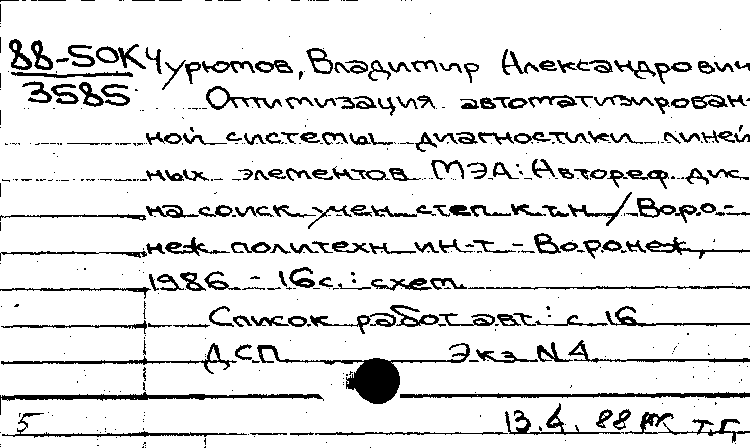 88-50К Чурютов, Владимир Александрович
3585 Оптимизация автоматизирован-
ной системы диагностики линей
ных элементов МЭА: Автореф. дис.
на соиск учен степ к.т.н / Воро-
неж политехн ин-т - Воронеж,
1986 - 16с.: схем.
Список работ авт.: с 16
ДСП Экз N 4
5 13.4.88 т.г.